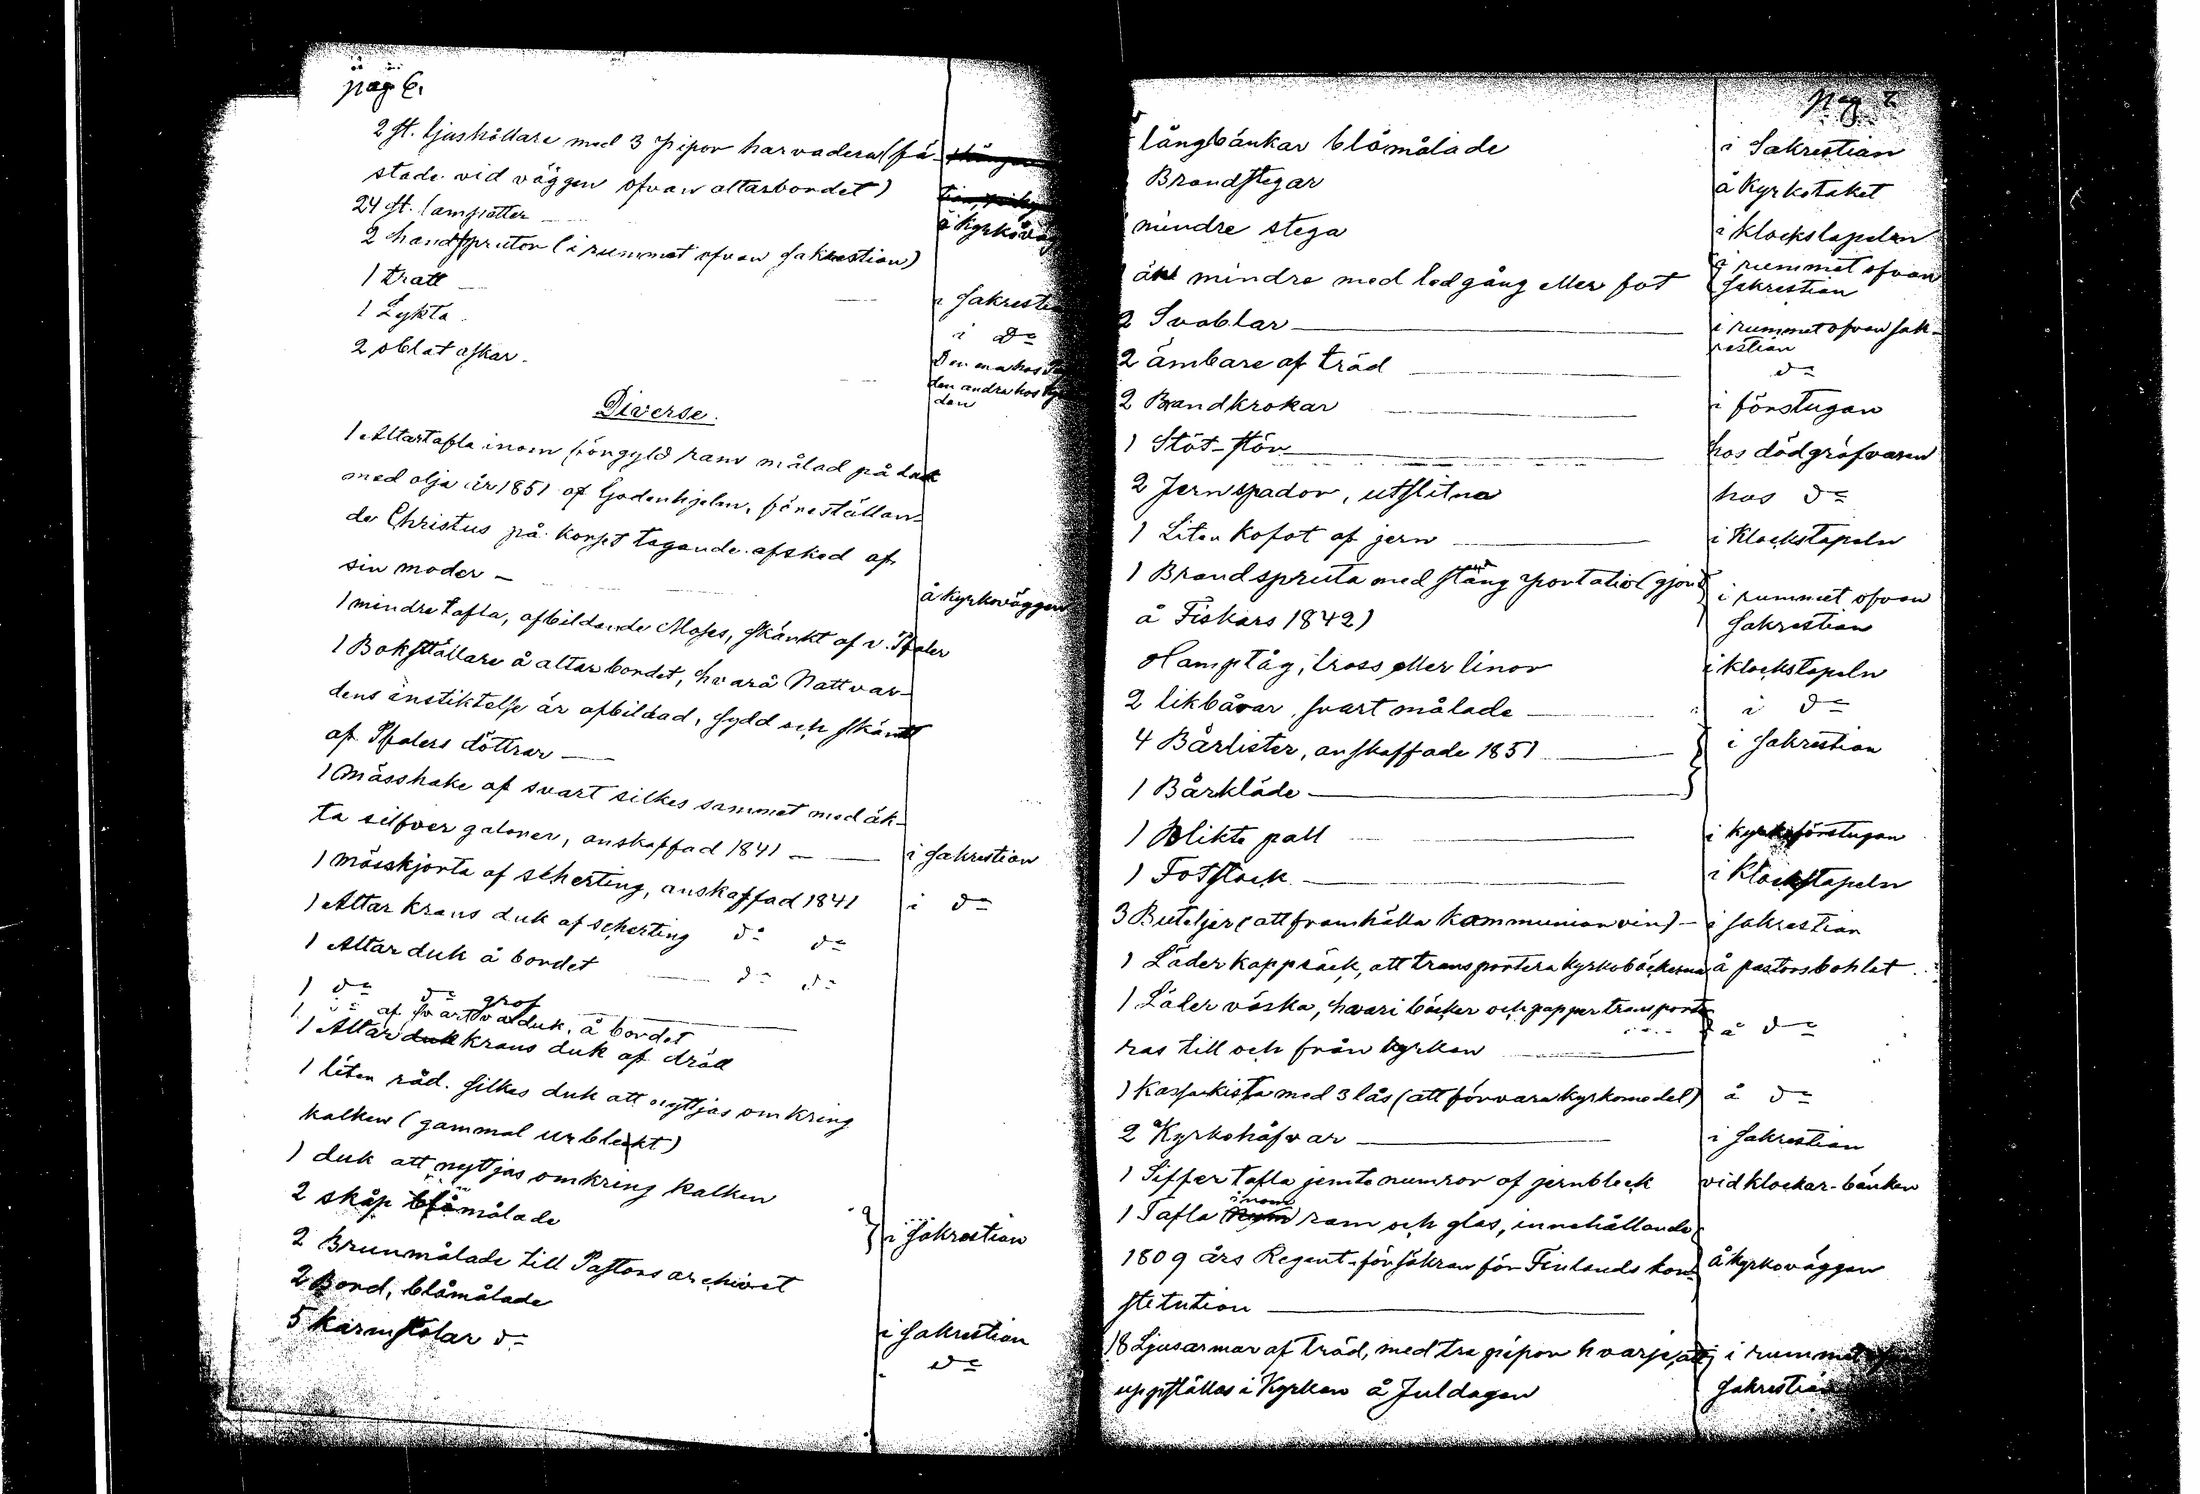 pag 6.
2 st. ljushållare med 3 pipor harvadera (fä-
stade vid väggen ofvan altarbordet)
24 st. lampetter
å Kyrkoväg
2 handsprutor (i rummet ofvan Sakrestian)
1 tratt
i Sakrestia
1 Lykta
i do
2 oblat askar.
Den ena hos
den andra hos
den
Diverse.
1 Altartafla inom förgyld ram målad på duk
med olja år 1851 af Godenhjelm, föreställan-
de Christus på korset tagande afsked af
sin moder
å kyrkoväggen
1 mindre tafla, afbildande Moses, skänkt af v. Pfaler
1 Bokställare å altarbordet, hvarå Nattvar-
dens instiktelse är afbildad, sydd och skänkt
af Pfalers döttrar
1 Mässhake af svart silkes sammet med äk-
ta silfver galoner, anskaffad 1841
i Sakrestian
1 mässkjorta af scherting, anskaffad 1841
i do
1 Altar krans duk af scherting do do
1 Altar duk å bordet do do
1 do do
1 do af svart grof valduk, å bordet
1 Altar duk krans duk af dräll
1 liten röd silkes duk att nyttjas omkring
kalken (gammal urblekt)
1 duk att nyttjas omkring kalken
2 skåp blåmålade
i Sakrestian
2 Brunmålade till Pastors archivet
2 Bord, blåmålade
i Sakrestian
5 karmstolar do
do
pag 7
långbänkar blåmålade
i Sakrestian
Brandstegar
å Kyrkotaket
mindre stega
i klockstapeln
1 än mindre med ledgång eller fot
i rummet ofvan
Sakrestian
2 Svablar
i rummet ofvan Sak-
restian
2 ämbare af träd
do
2 Brandkrokar
i förstugan
1 Stöt-stör
hos dödgräfvaren
2 Jernspador, utslitna
hos do
1 Liten kofot af jern
i Klockstapeln
1 Brandspruta med stång portatio (gjord
i rummet ofvan
å Fiskars 1842)
Sakrestian
Hamptåg, tross eller linor
i klockstapeln
2 likbårar svart målade
i do
4 Bårlister, anskaffade 1851
i Sakrestian
1 Bårkläde
1 Blikte pall
i kyrkoförstugan
1 Fotstock
i Klockstapeln
3 Buteljer (att framhålla kommunion vin)
i Sakrestian
1 Läder kappsäck, att transportera kyrkoböckerna
å pastorsbohlet
1 Läder väska, hvari böcker och papper transporte-
å do
ras till och från kyrkan
1 Kassakista med 3 lås (att förvara kyrkomedel)
å do
2 Kyrkohåfvar
i Sakrestian
1 Siffertafla jemte numror af jernbleck
vid klockar-bänken
1 Tafla inom ram och glas, innehållande
1809 års Regent-försäkran för Finlands kon-
å kyrkoväggen
stitution
18 Ljusarmar af träd, med tre pipor hvarje, att
i rummet
uppställas i Kyrkan å Juldagen
Sakrestian